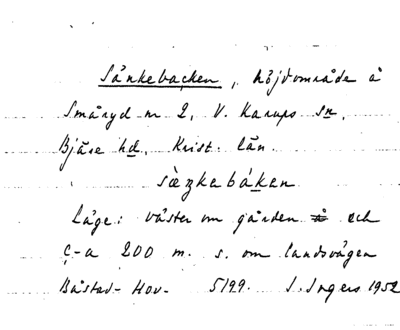 Sänkebacken, höjdområde å
Småryd nr 2, V. Karups sn,
Bjäre hd, Krist. län.
sæ̀ŋkebákan
Läge: väster om gården å och
c-a 200 m. s. om landsvägen
Båstad- Hov- 5199. I. Ingers 1952